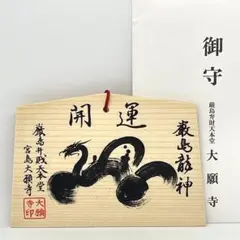 開運
嚴島龍神
嚴島弁財天本堂
宮島大願寺
大願
寺印
御守
嚴島弁財天本堂
大願寺